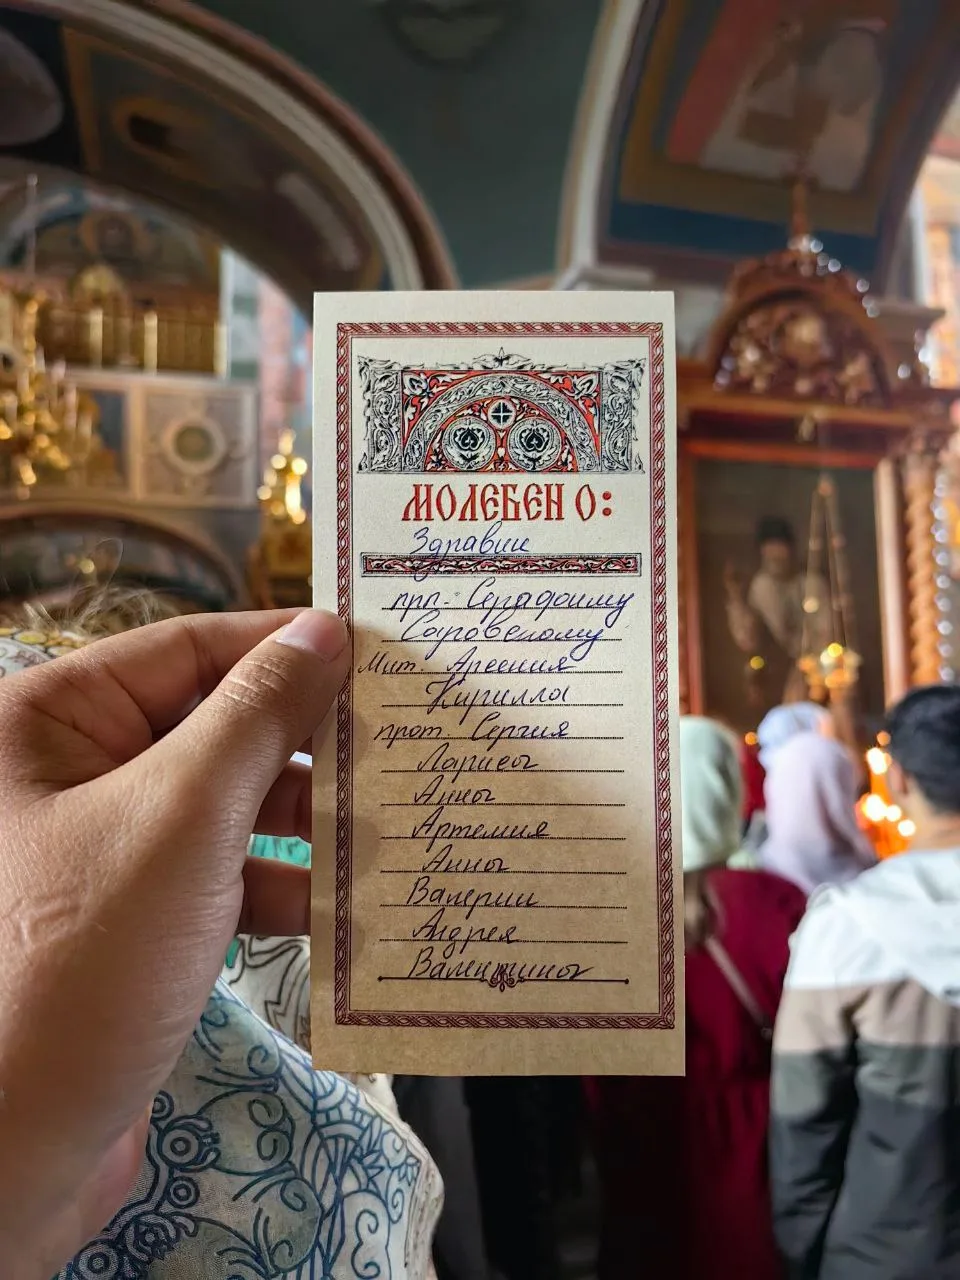 МОЛЕБЕН О:
Здравии
прп. Серафиму
Саровскому
Мит. Арсения
Кирилла
прот. Сергия
Ларисы
Анны
Артемия
Анны
Валерии
Андрея
Валентины